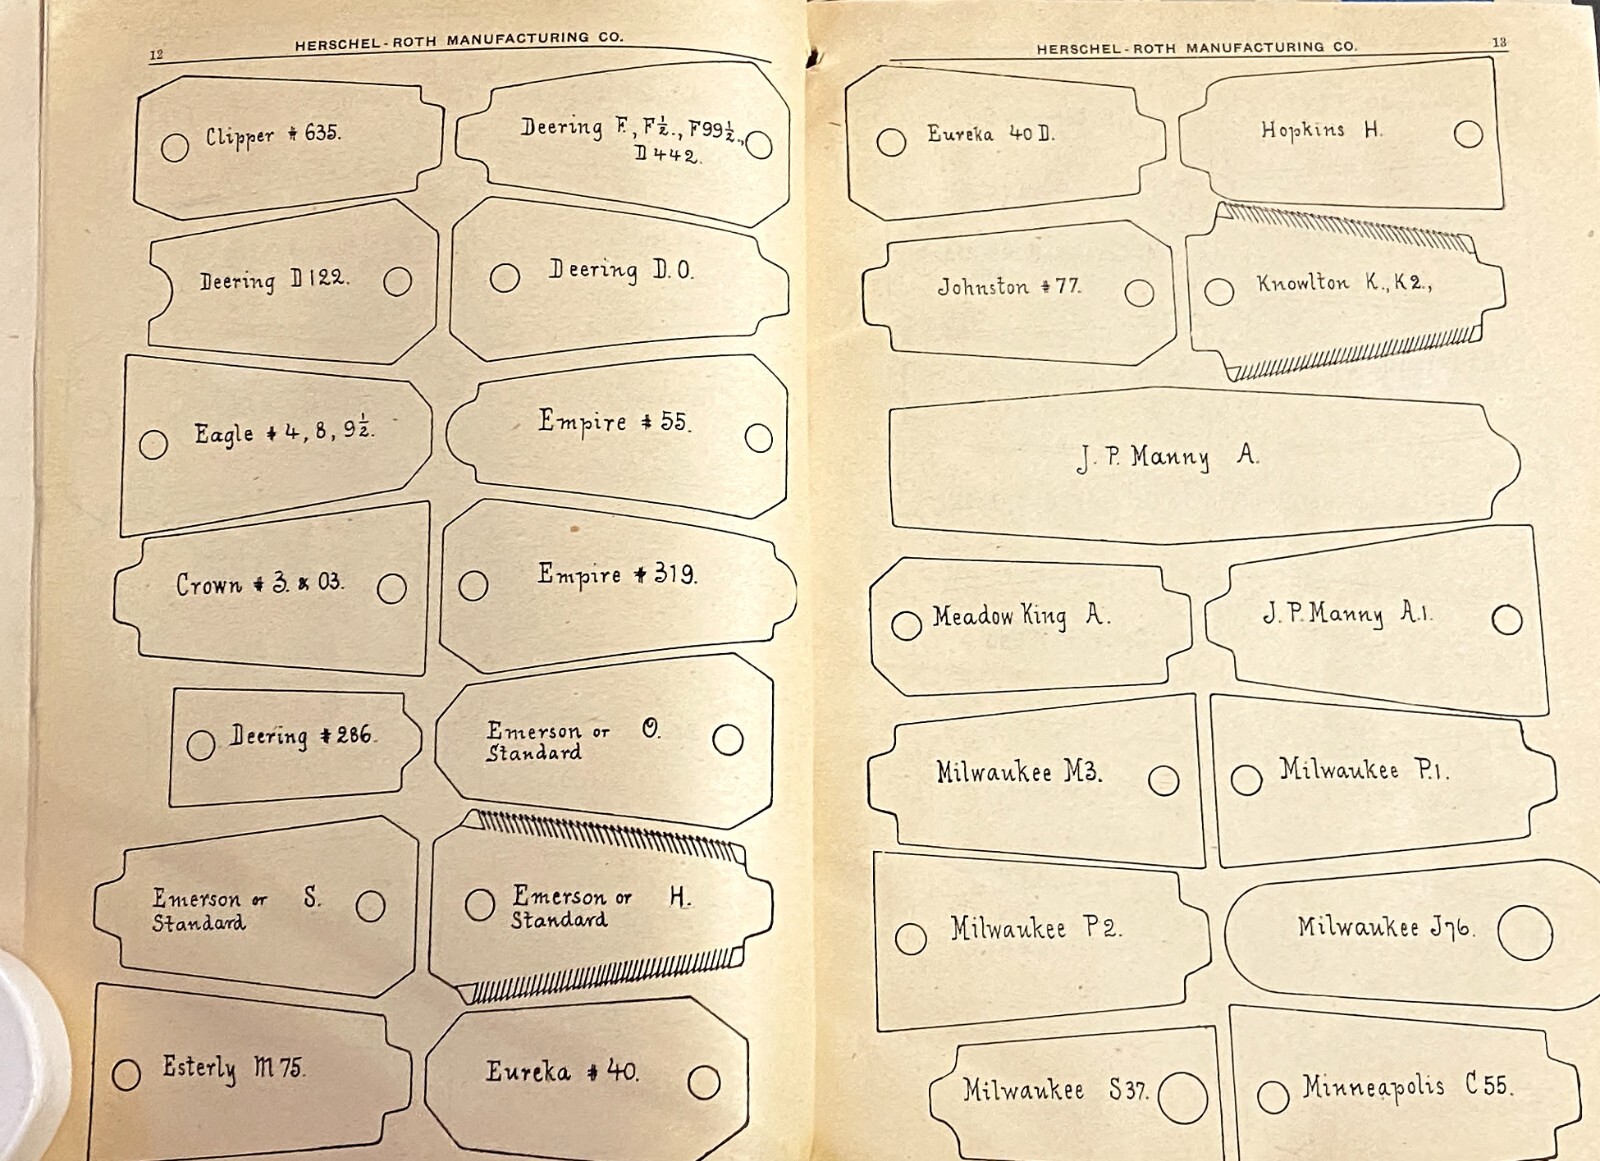 12
HERSCHEL-ROTH MANUFACTURING CO.
Clipper # 635.
Deering F., F½., F99½.,
D442.
Deering D122.
Deering D.O.
Eagle # 4, 8, 9½.
Empire # 55.
Crown # 3. & 03.
Empire # 319.
Deering # 286.
Emerson or O.
Standard
Emerson or S.
Standard
Emerson or H.
Standard
Esterly M75.
Eureka # 40.
HERSCHEL-ROTH MANUFACTURING CO.
13
Eureka 40D.
Hopkins H.
Johnston #77.
Knowlton K., K2.,
J. P. Manny A.
Meadow King A.
J. P. Manny A.1.
Milwaukee M3.
Milwaukee P.1.
Milwaukee P2.
Milwaukee J76.
Milwaukee S37.
Minneapolis C55.